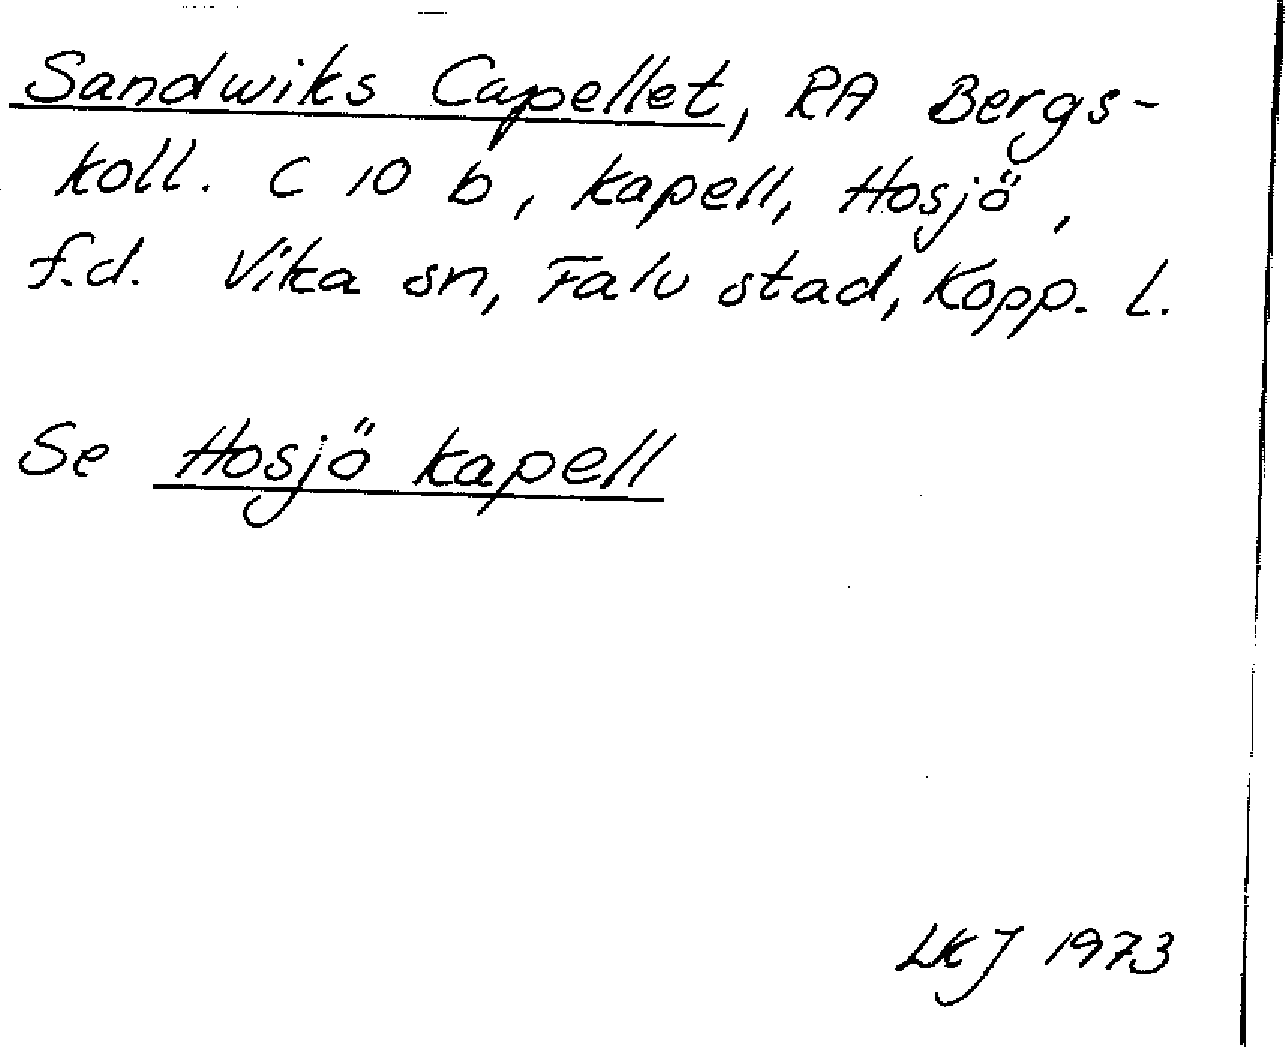 Sandwiks Capellet, RA Bergs-
koll. C 10 b, kapell, Hosjö,
f.d. Vika sn, Falu stad, Kopp. l.
Se Hosjö kapell
LKJ 1973